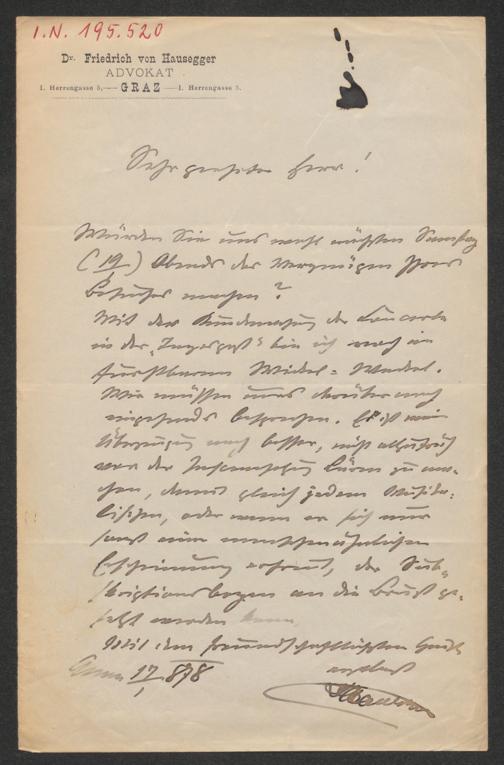 I.N. 195.520
Dr. Friedrich von Hausegger
ADVOKAT
I. Herrengasse 5, — GRAZ — I. Herrengasse 5.
Sehr geehrter Herr!
Würden Sie uns nicht nächsten Samstag
(19/1) Abends das Vergnügen Ihres
Besuches machen?
Mit der Kundmachung der Concerte
in der „Tagespost“ bin ich noch im
furchtbaren Wickel-Wackel.
Wir müssen uns darüber noch
eingehends besprechen. Es ist mein
Überzeugung nach besser, nicht allzufrüh
von der Lärm zu ma-
chen, damit gleich jedem Musika-
lischen, oder wenn er sich nur
sonst einer menschenähnlichen
Erscheinung erfreut, der Sub-
skriptionsbogen an die Brust ge-
setzt werden kann.
Mit dem freundschaftlichsten Gruß
ergebenst
17/1 878